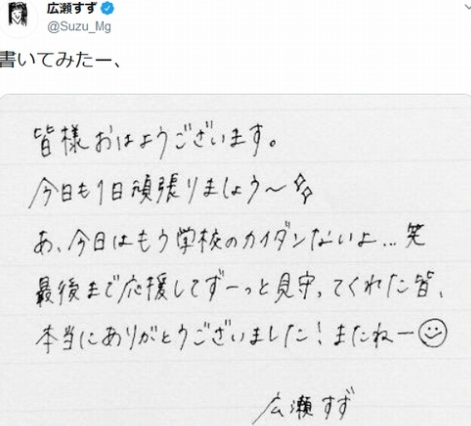 広瀬すず
@Suzu_Mg
書いてみたー、
皆様おはようございます。
今日も1日頑張りましょう〜
あ、今日はもう学校のカイダンないよ...笑
最後まで応援してずーっと見守ってくれた皆、
本当にありがとうございました！またねー
広瀬すず